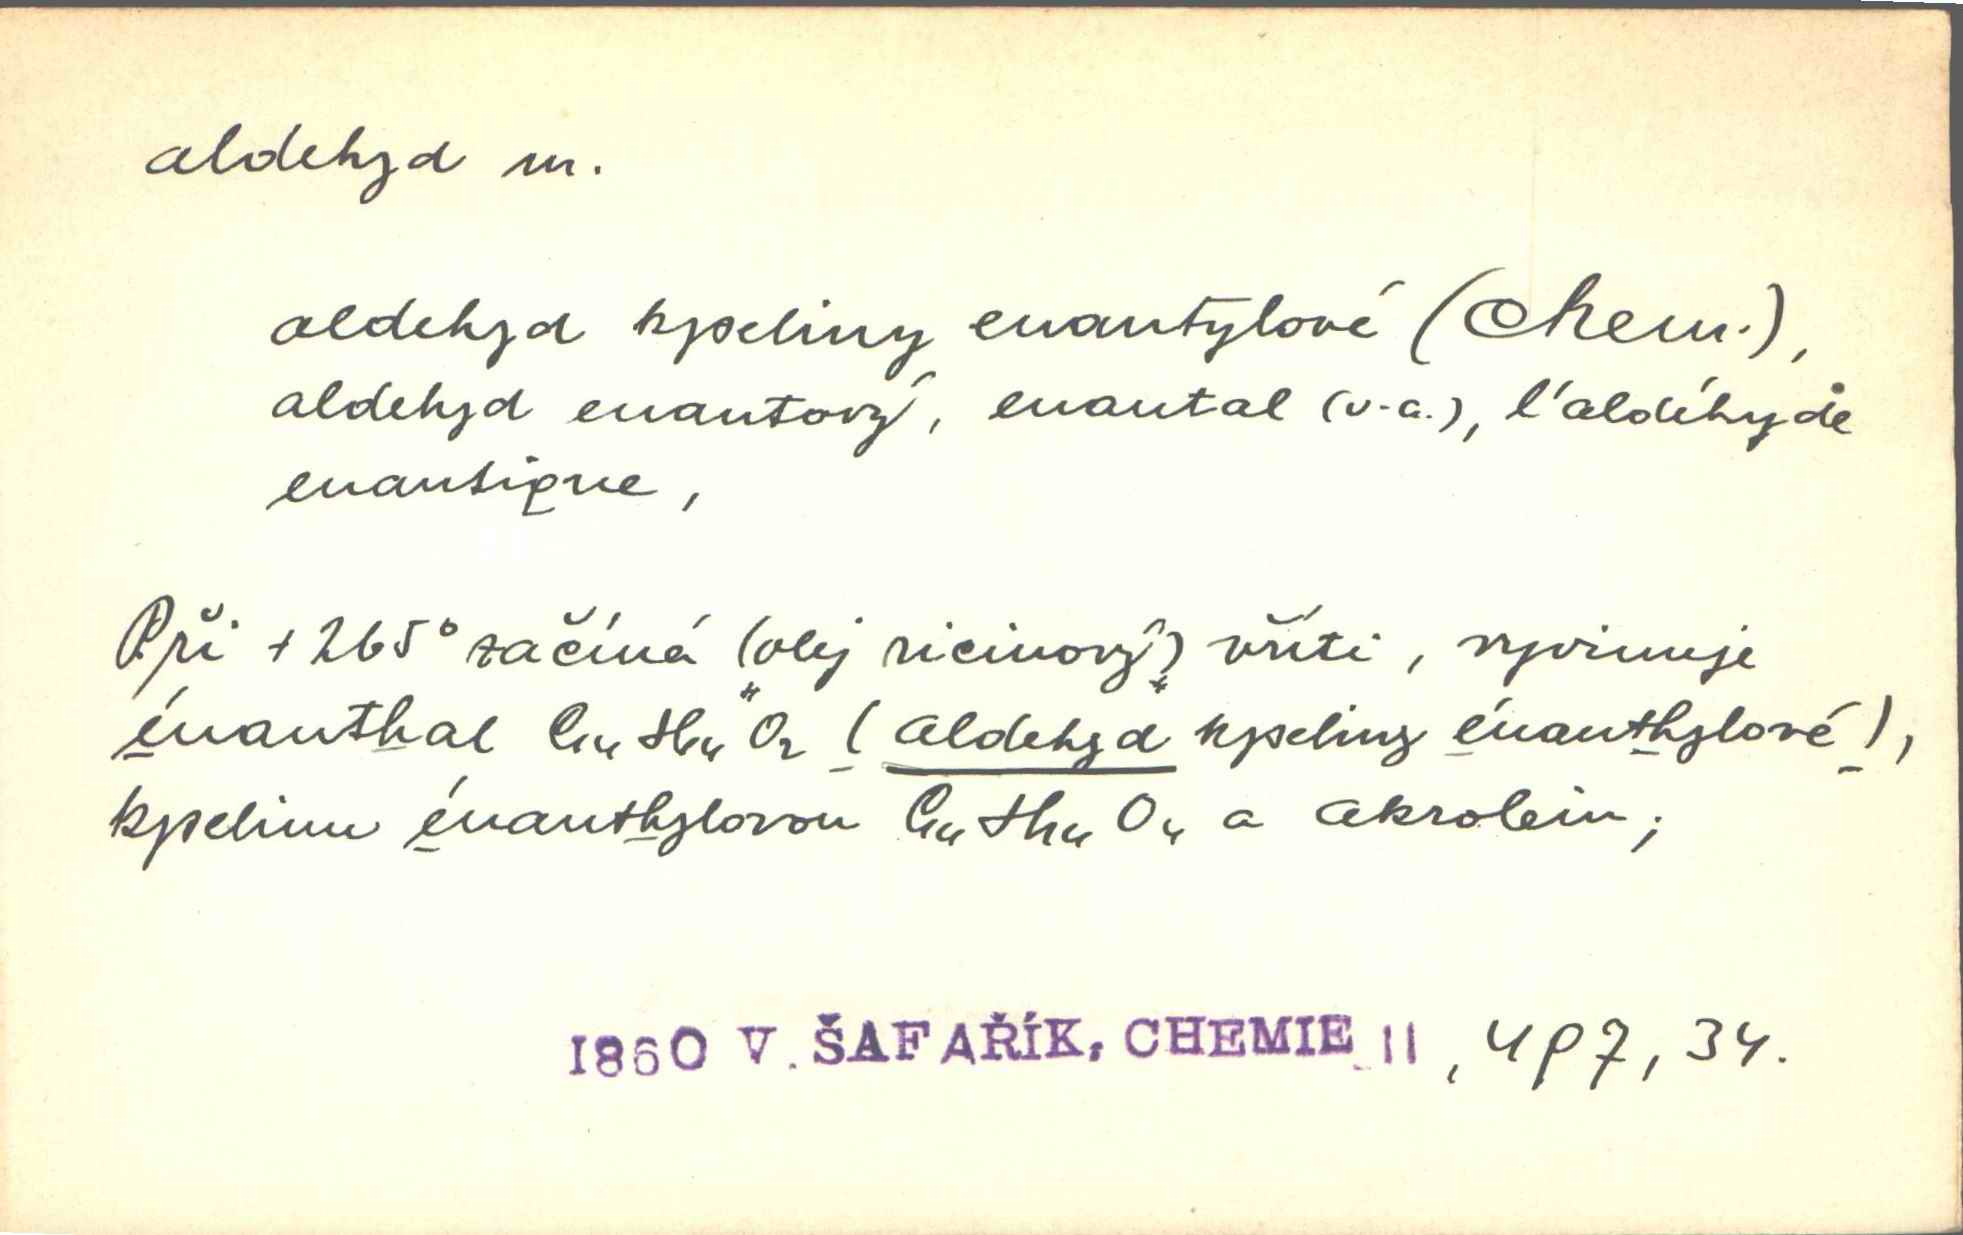 aldehyd m.
aldehyd kyseliny enantylové (Chem.),
aldehyd enantový, enantal (v.a.), l'aldéhyde
enantique,
Při +265° začíná (olej ricinový) vříti, vyvinuje
énanthal C₁₄H₁₄O₂ (aldehyd kyseliny énanthylové),
kyselinu énanthylovou C₁₄H₁₄O₄ a akrolein;
1860 V. ŠAFAŘÍK, CHEMIE II, 497, 34.